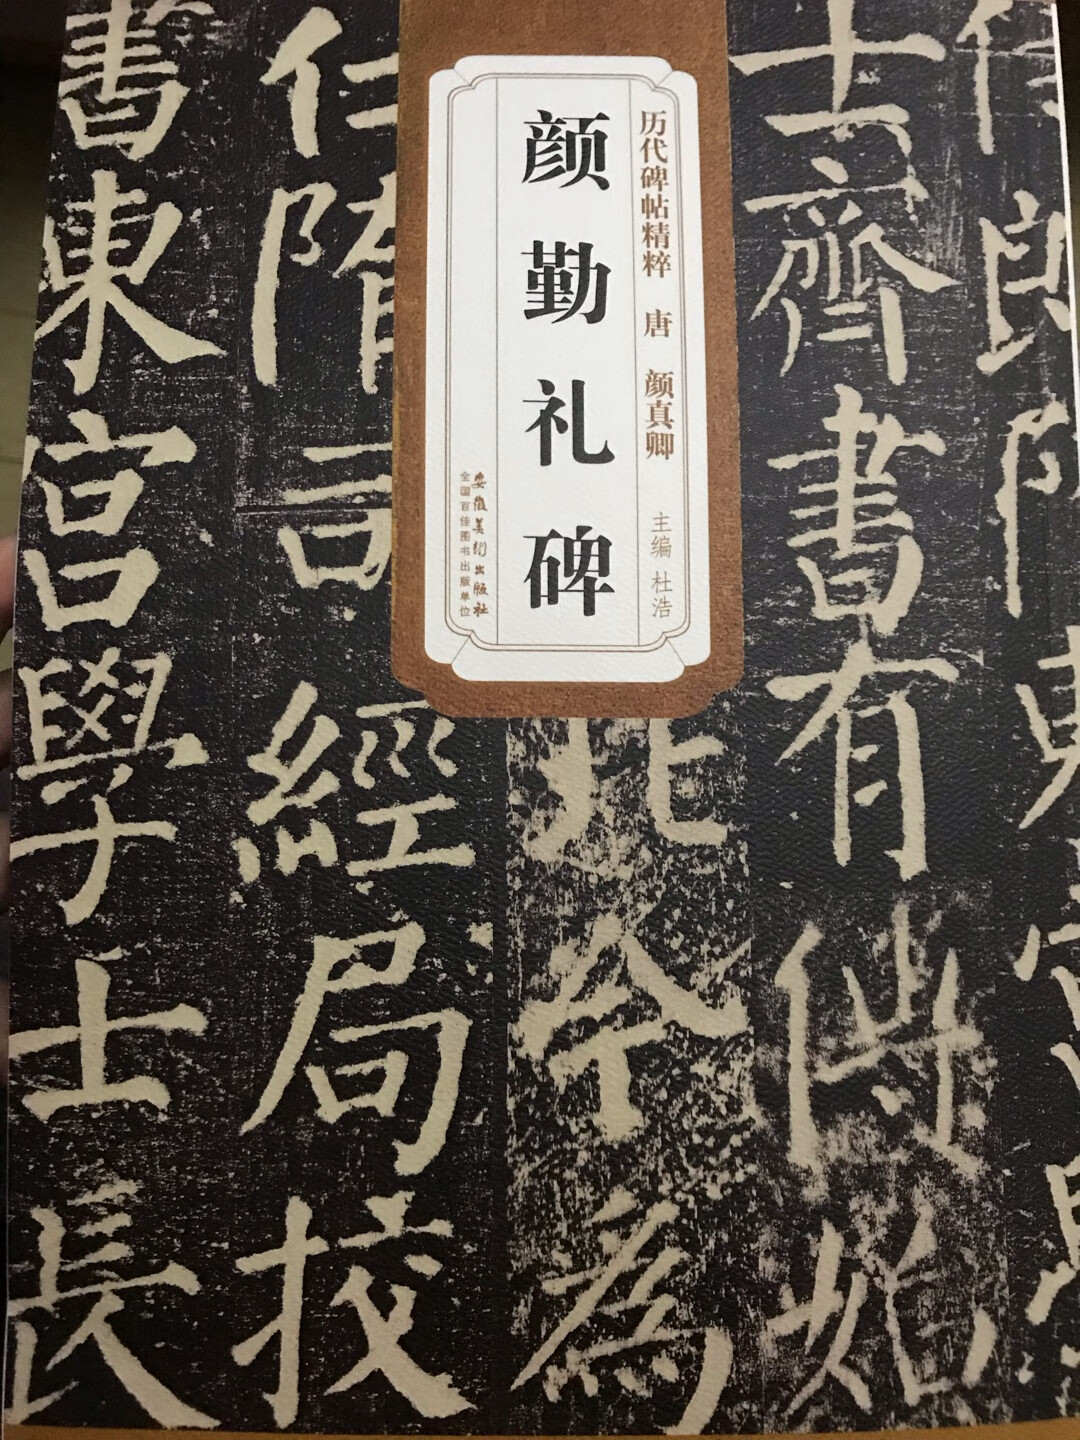 历代碑帖精粹 唐 颜真卿
主编 杜浩
颜勤礼碑
安徽美术出版社
全国百佳图书出版单位
士齊書有傳始
北令為
仕隋司經局校
書東宮學士長